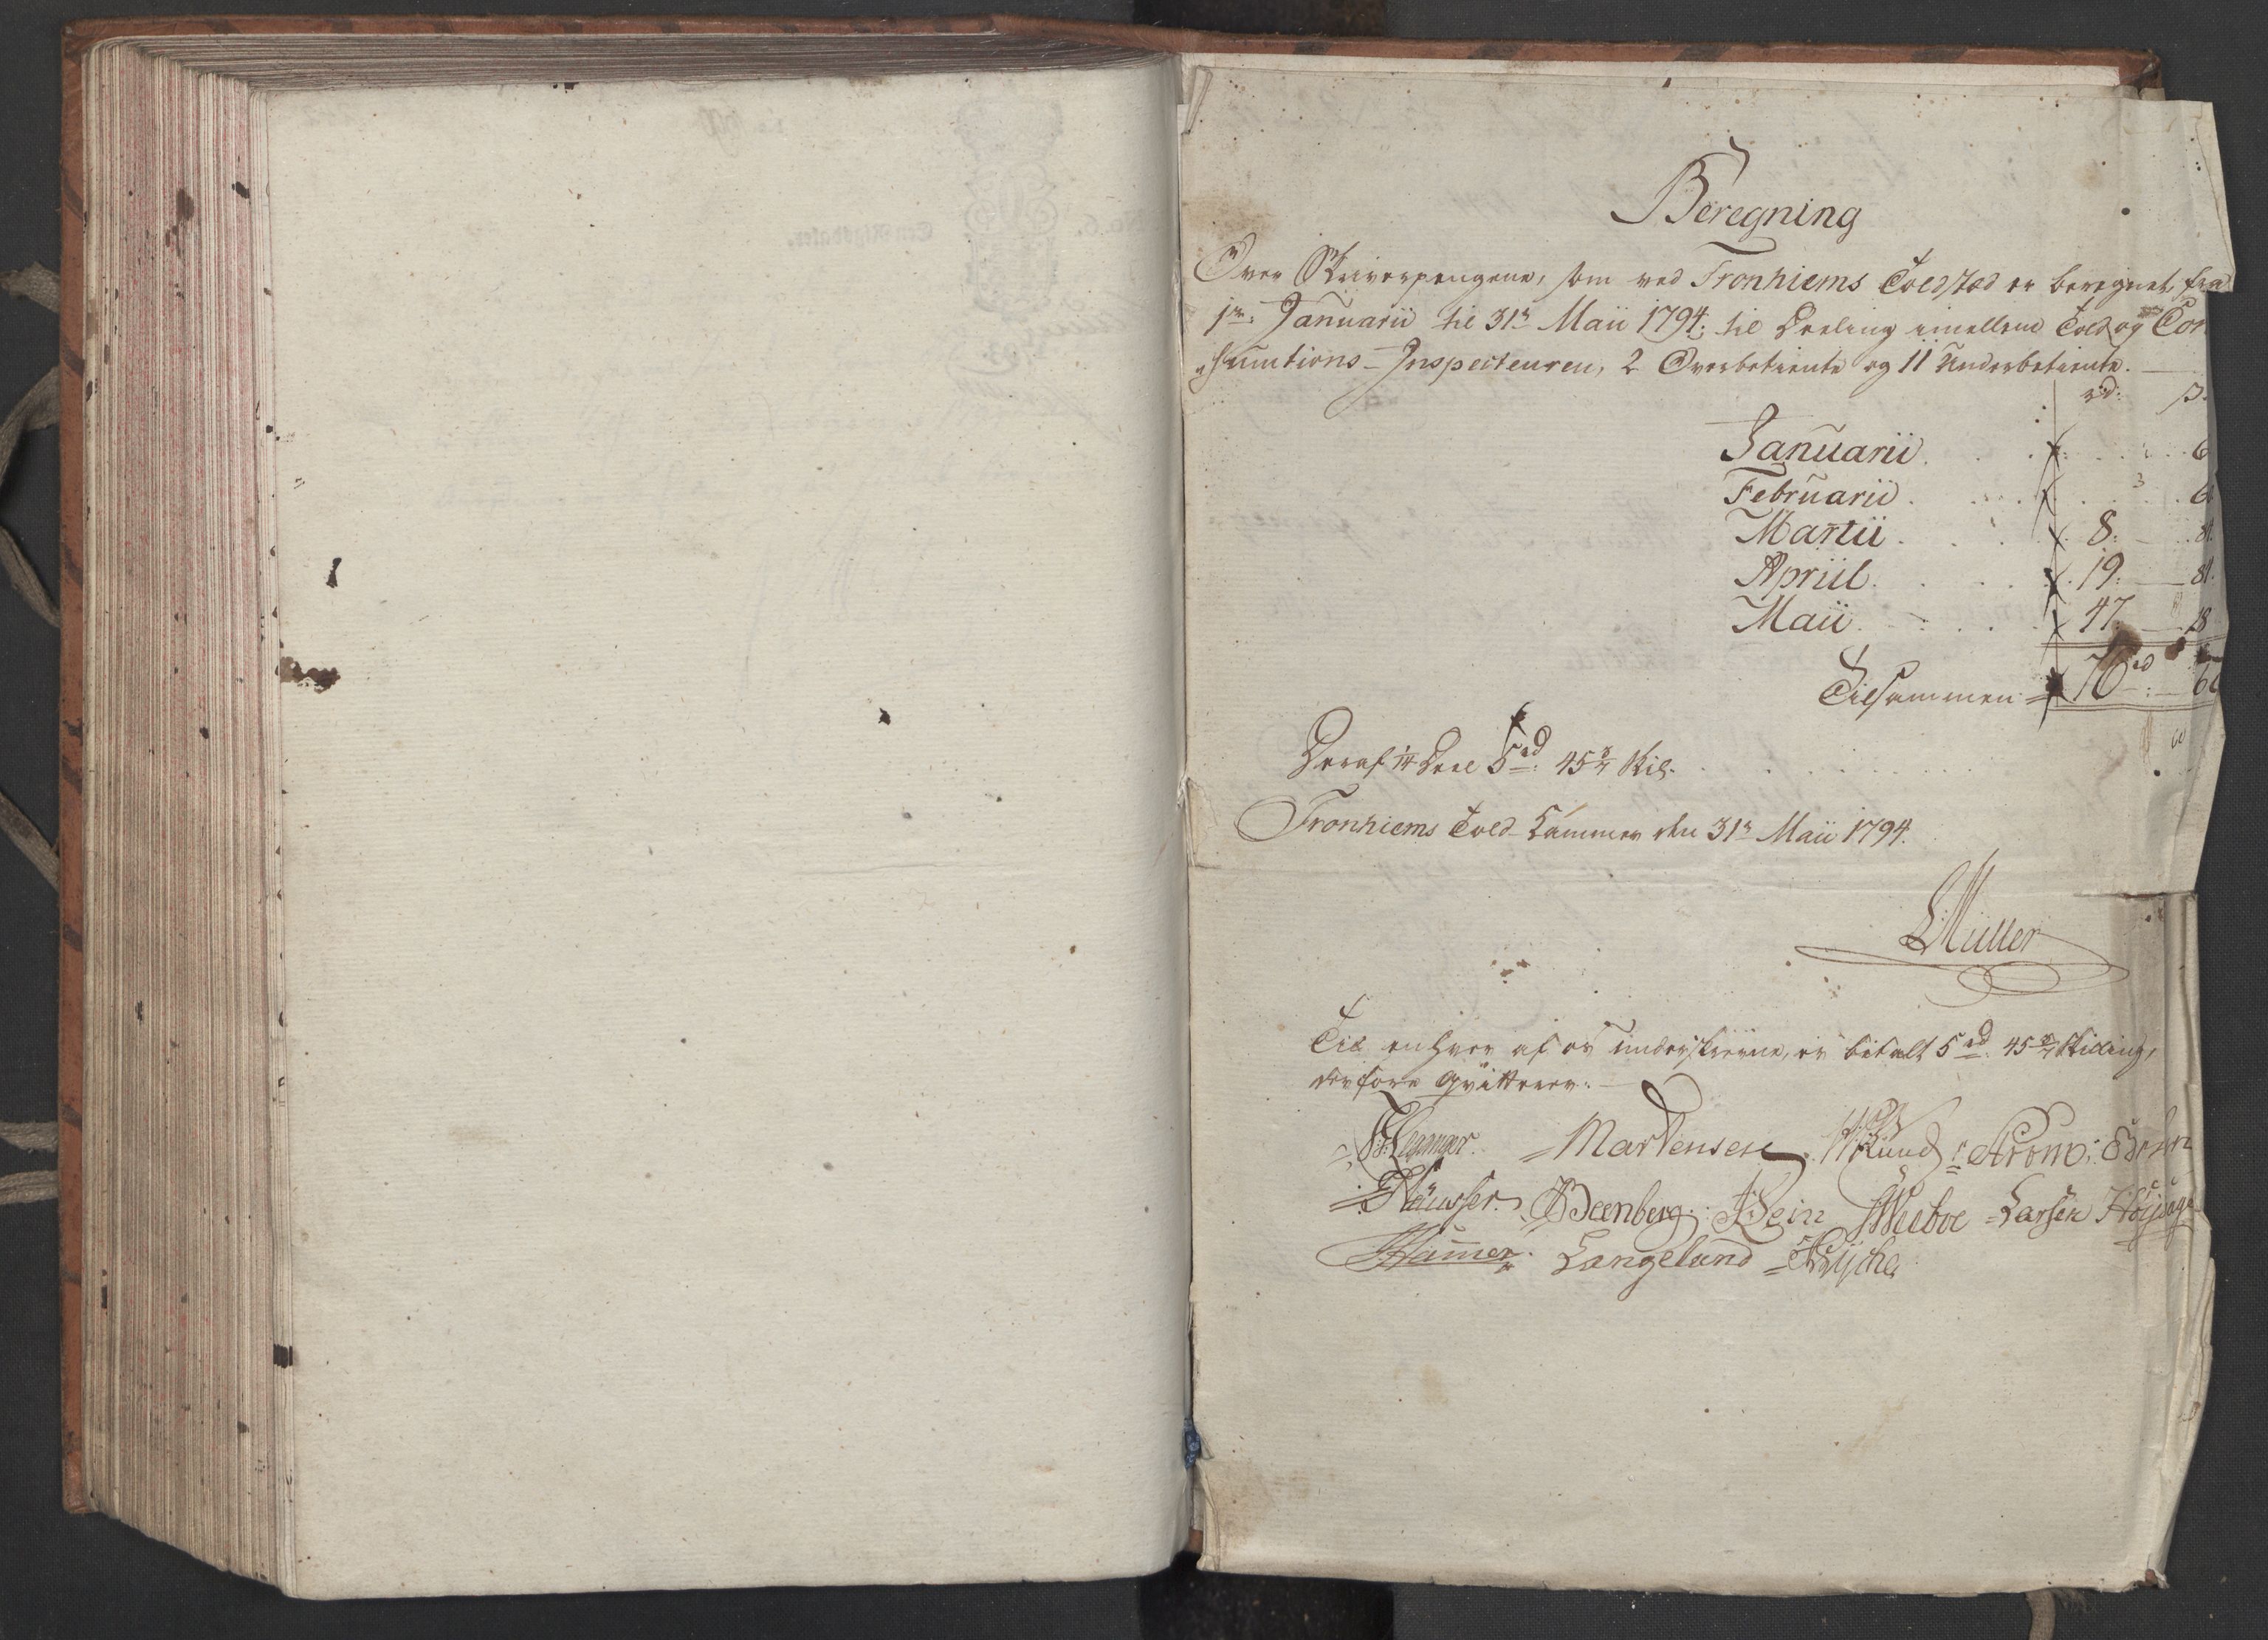 Beregning
Over Skriverpengene, som ved Tronhiems Toldsted er beregnet, fra
1te Januarii til 31te Maii 1794; til Deeling imellem Told og Con
sumtions-Inspecteuren, 2 Overbetiente og 11 Underbetiente.
rd: s.
Januarii 6
Februarii 6
Martii 8: 81.
Apriil 19: 81.
Maii 47: 18
Tilsammen 76 rd: 6
Deraf 1/14 Deel 5 rd: 45 3/7 skil.
Tronhiems Told-Kammer den 31te Maii 1794.
Müller
Til enhver af os underskrevne, er betalt 5 rd: 45 3/7 skilling,
derfore qvitterer:
Martensen. Lund Strøm
Häusser. Beenberg. Wiebye Larsen
Hammer. Langelund